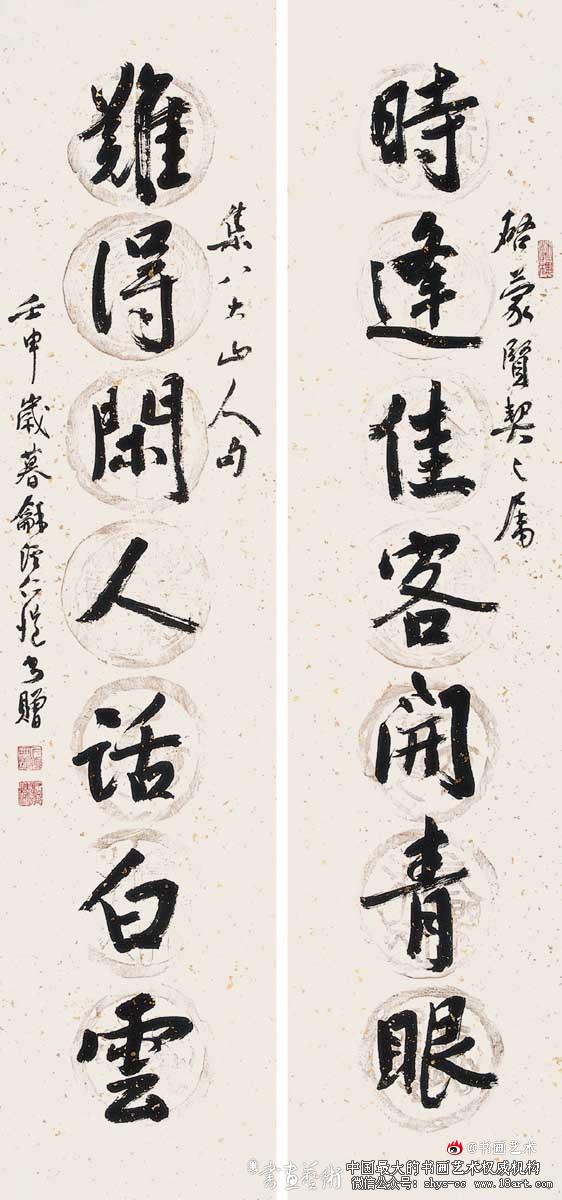 啟蒙賢契之属
時逢佳客開青眼
集八大山人句
難得閑人話白雲
壬申歲暮龢溪仁愷書贈
@书画艺术
書畫藝術
中国最大的书画艺术权威机构
微信公众号：shys-cc www.18art.com